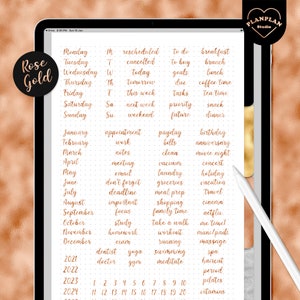 PLANPLAN
Studio
Rose
Gold
Monday M rescheduled to do breakfast
Tuesday T cancelled to buy brunch
Wednesday W today goals lunch
Thursday Th tomorrow due coffee time
Friday F this week Tasks Tea time
Saturday Sa next week priority snack
Sunday Su weekend future dinner
January appointment payday birthday
February work bills anniversary
March notes clean movie night
April meeting vacuum concert
May email laundry holiday
June don't forget groceries vacation
July deadline meal prep travel
August important shopping cinema
September focus family time netflix
October study take a walk me time
November homework workout manicure
December exam running massage
dentist yoga swimming spa
2021 doctor gym meditate haircut
2022 period
2023 1 2 3 4 5 6 7 8 9 10 pilates
2024 vitamins